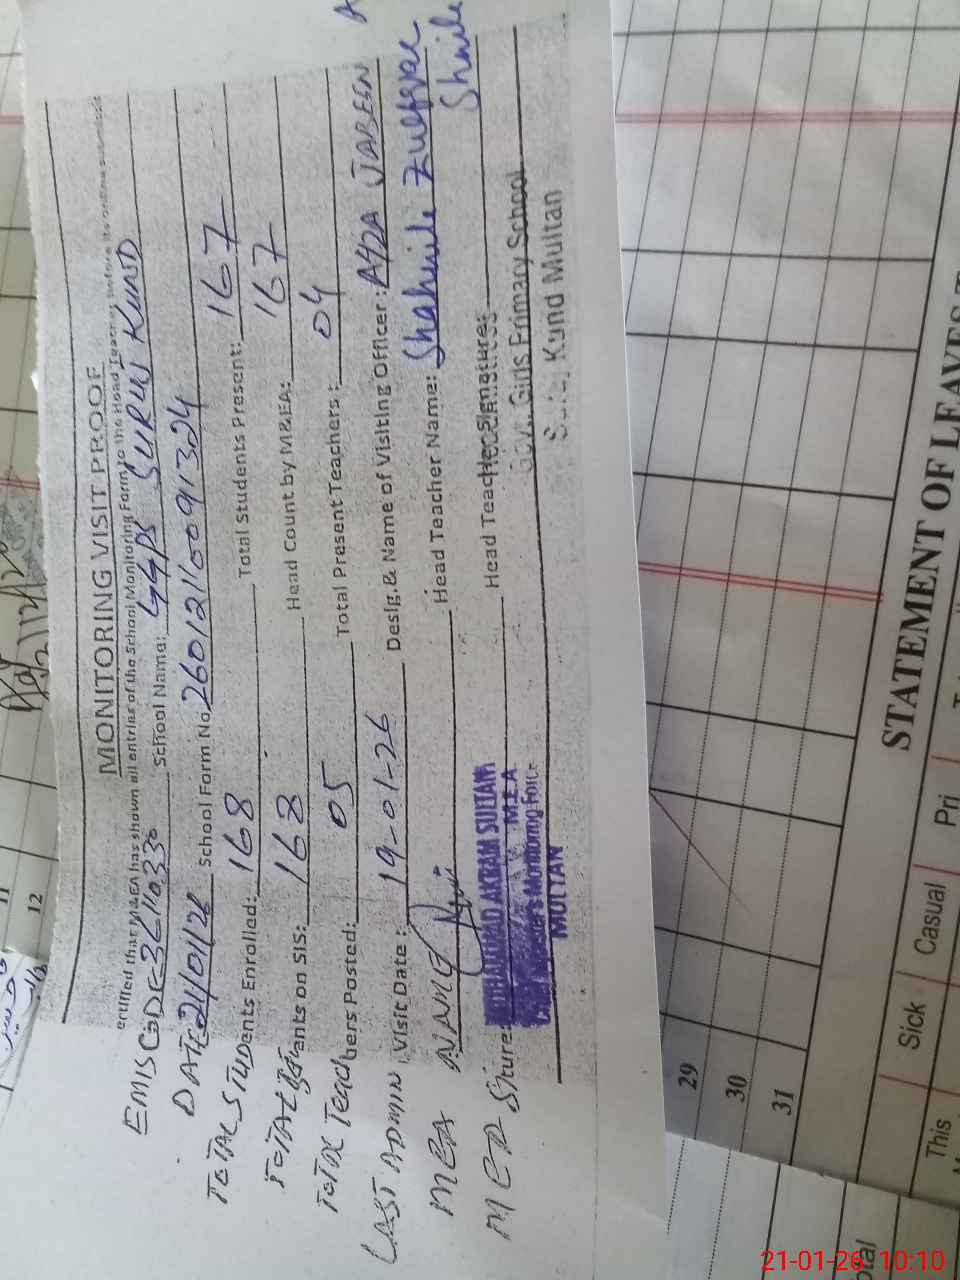 MONITORING VISIT PROOF
ertified that M&EA has shown all entries of the School Monitoring Form to the Head Teacher before its online
EMIS CODE 36110330 School Name: GGPS SURIN KUND
DATE 21/01/26 School Form No. 260121160091324
TOTAL STUDents Enrolled: 168 Total Students Present: 167
TOTAL ants on SIS: 168 Head Count by M&EA: 167
TOTAL Teachers Posted: 05 Total Present Teachers: 04
LAST ADMIN Visit Date: 19-01-26 Desig. & Name of Visiting Officer: AYZA JABEEN
MEA NAME Head Teacher Name: Shahnile Zulfqar
ture: Head Teacher Signatures: Shnile
MUHAMMAD AKRAM SULTAN
M.E.A
Monitoring Force
MULTAN
Govt. Girls Primary School
Kund Multan
11
12
29
30
31
STATEMENT OF LEAVES
This
Sick
Casual
Pri
otal
21-01-26 10:10